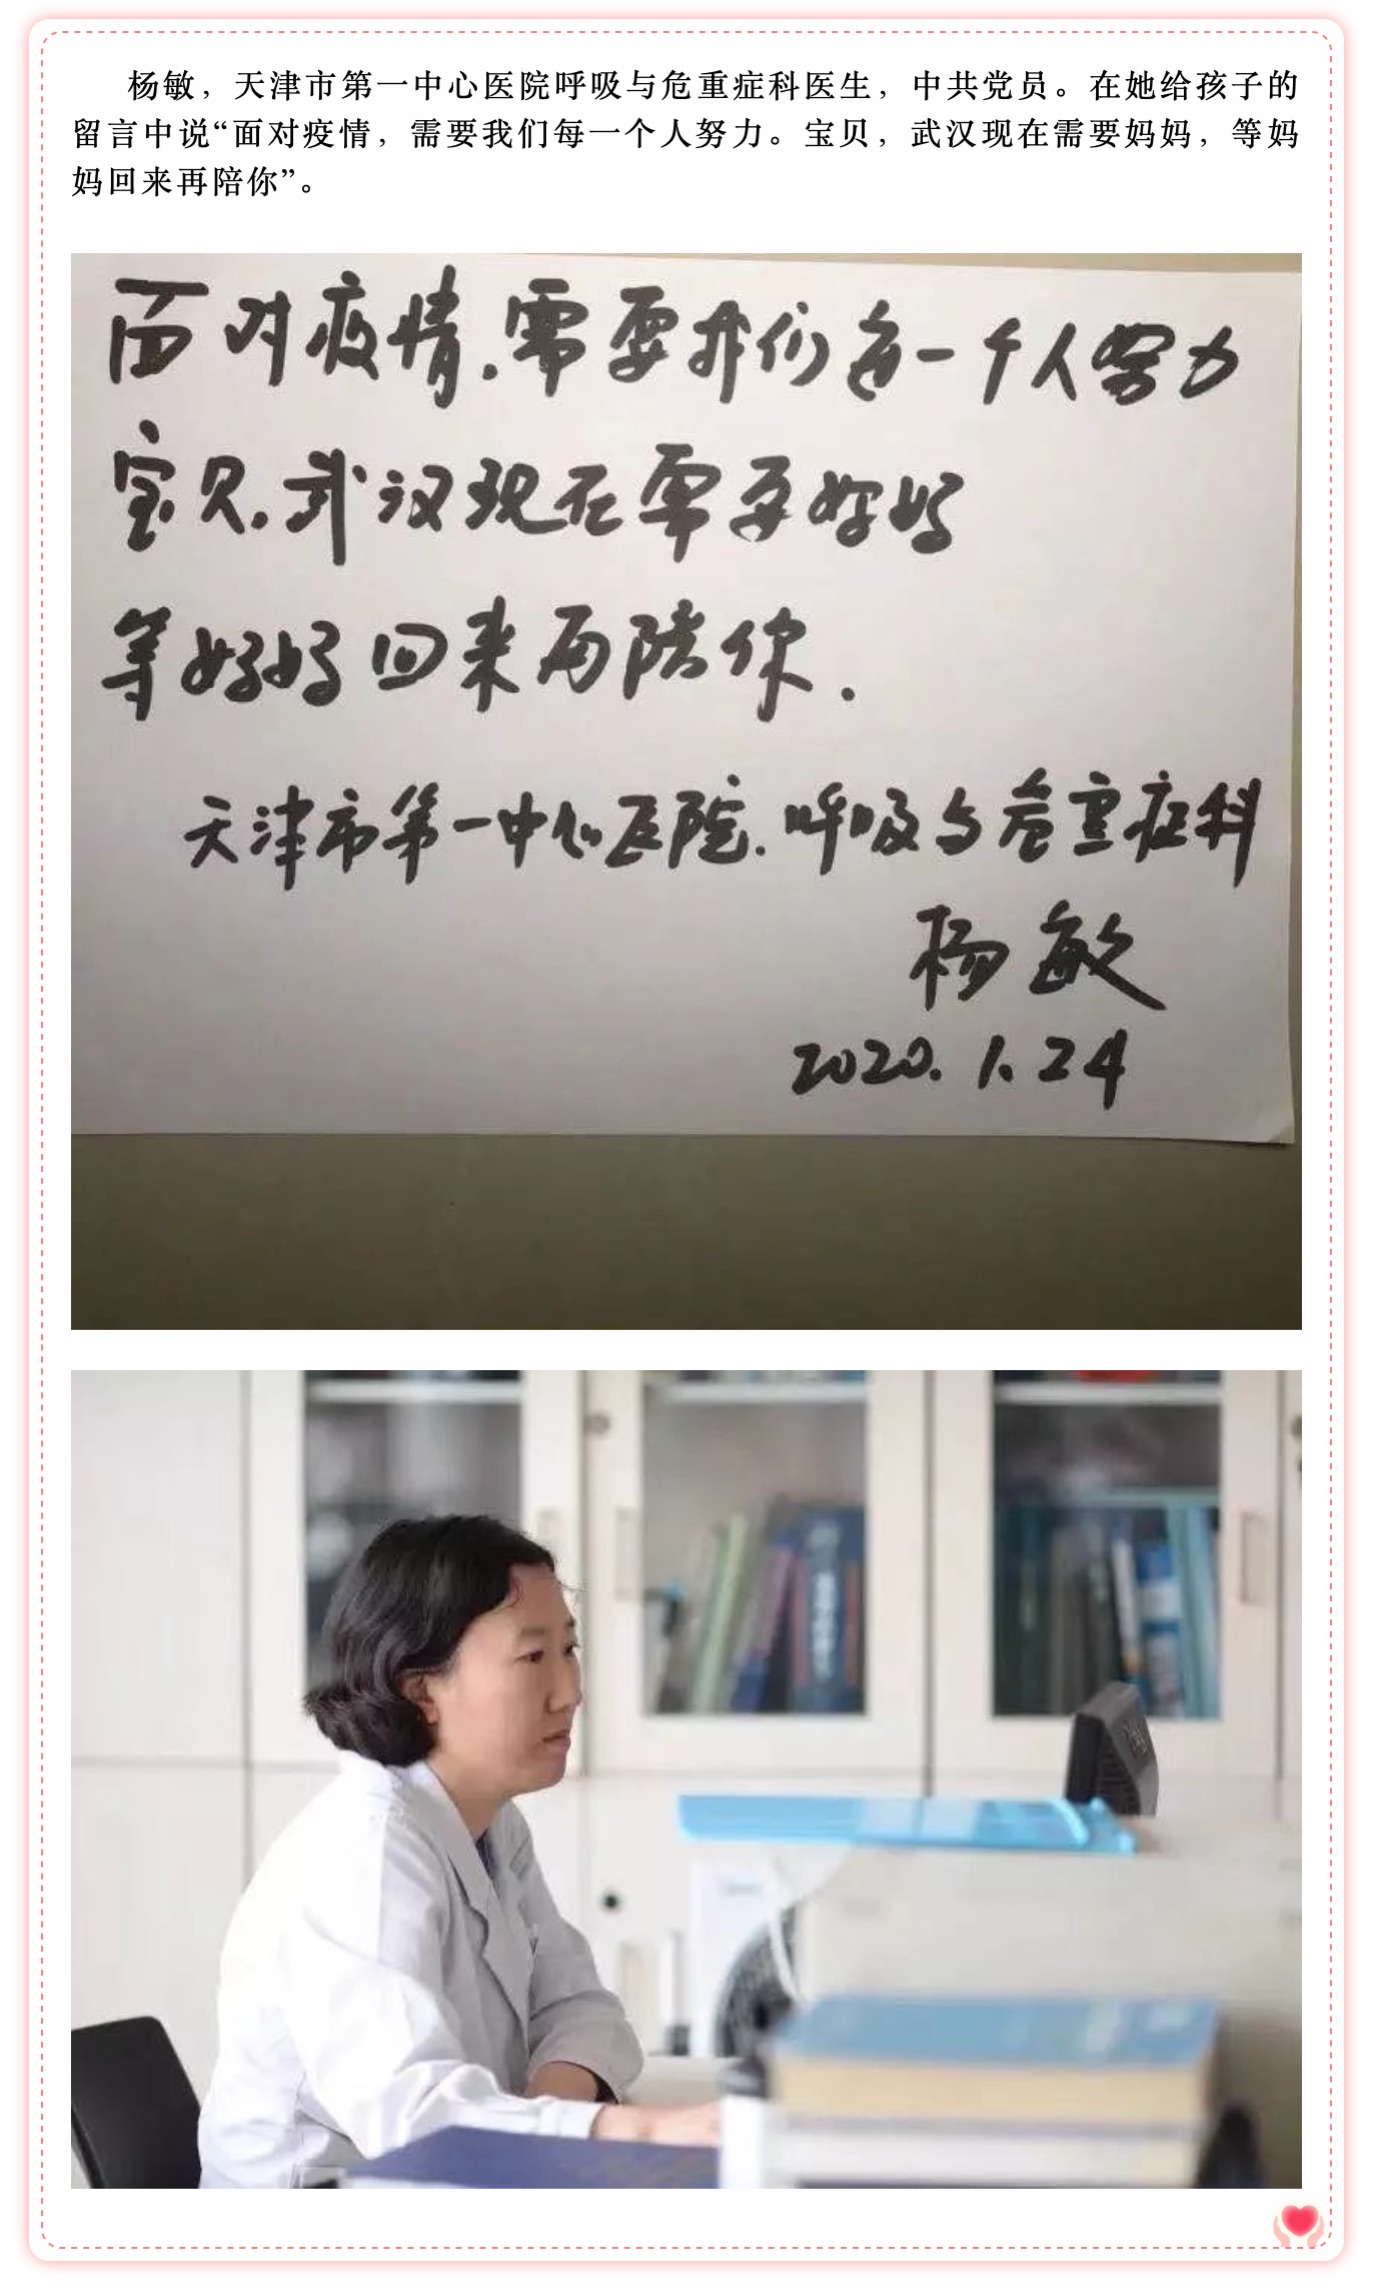 杨敏，天津市第一中心医院呼吸与危重症科医生，中共党员。在她给孩子的
留言中说“面对疫情，需要我们每一个人努力。宝贝，武汉现在需要妈妈，等妈
妈回来再陪你”。
面对疫情.需要我们每一个人努力
宝贝.武汉现在需要妈妈
等妈妈回来再陪你.
天津市第一中心医院.呼吸与危重症科
杨敏
2020.1.24